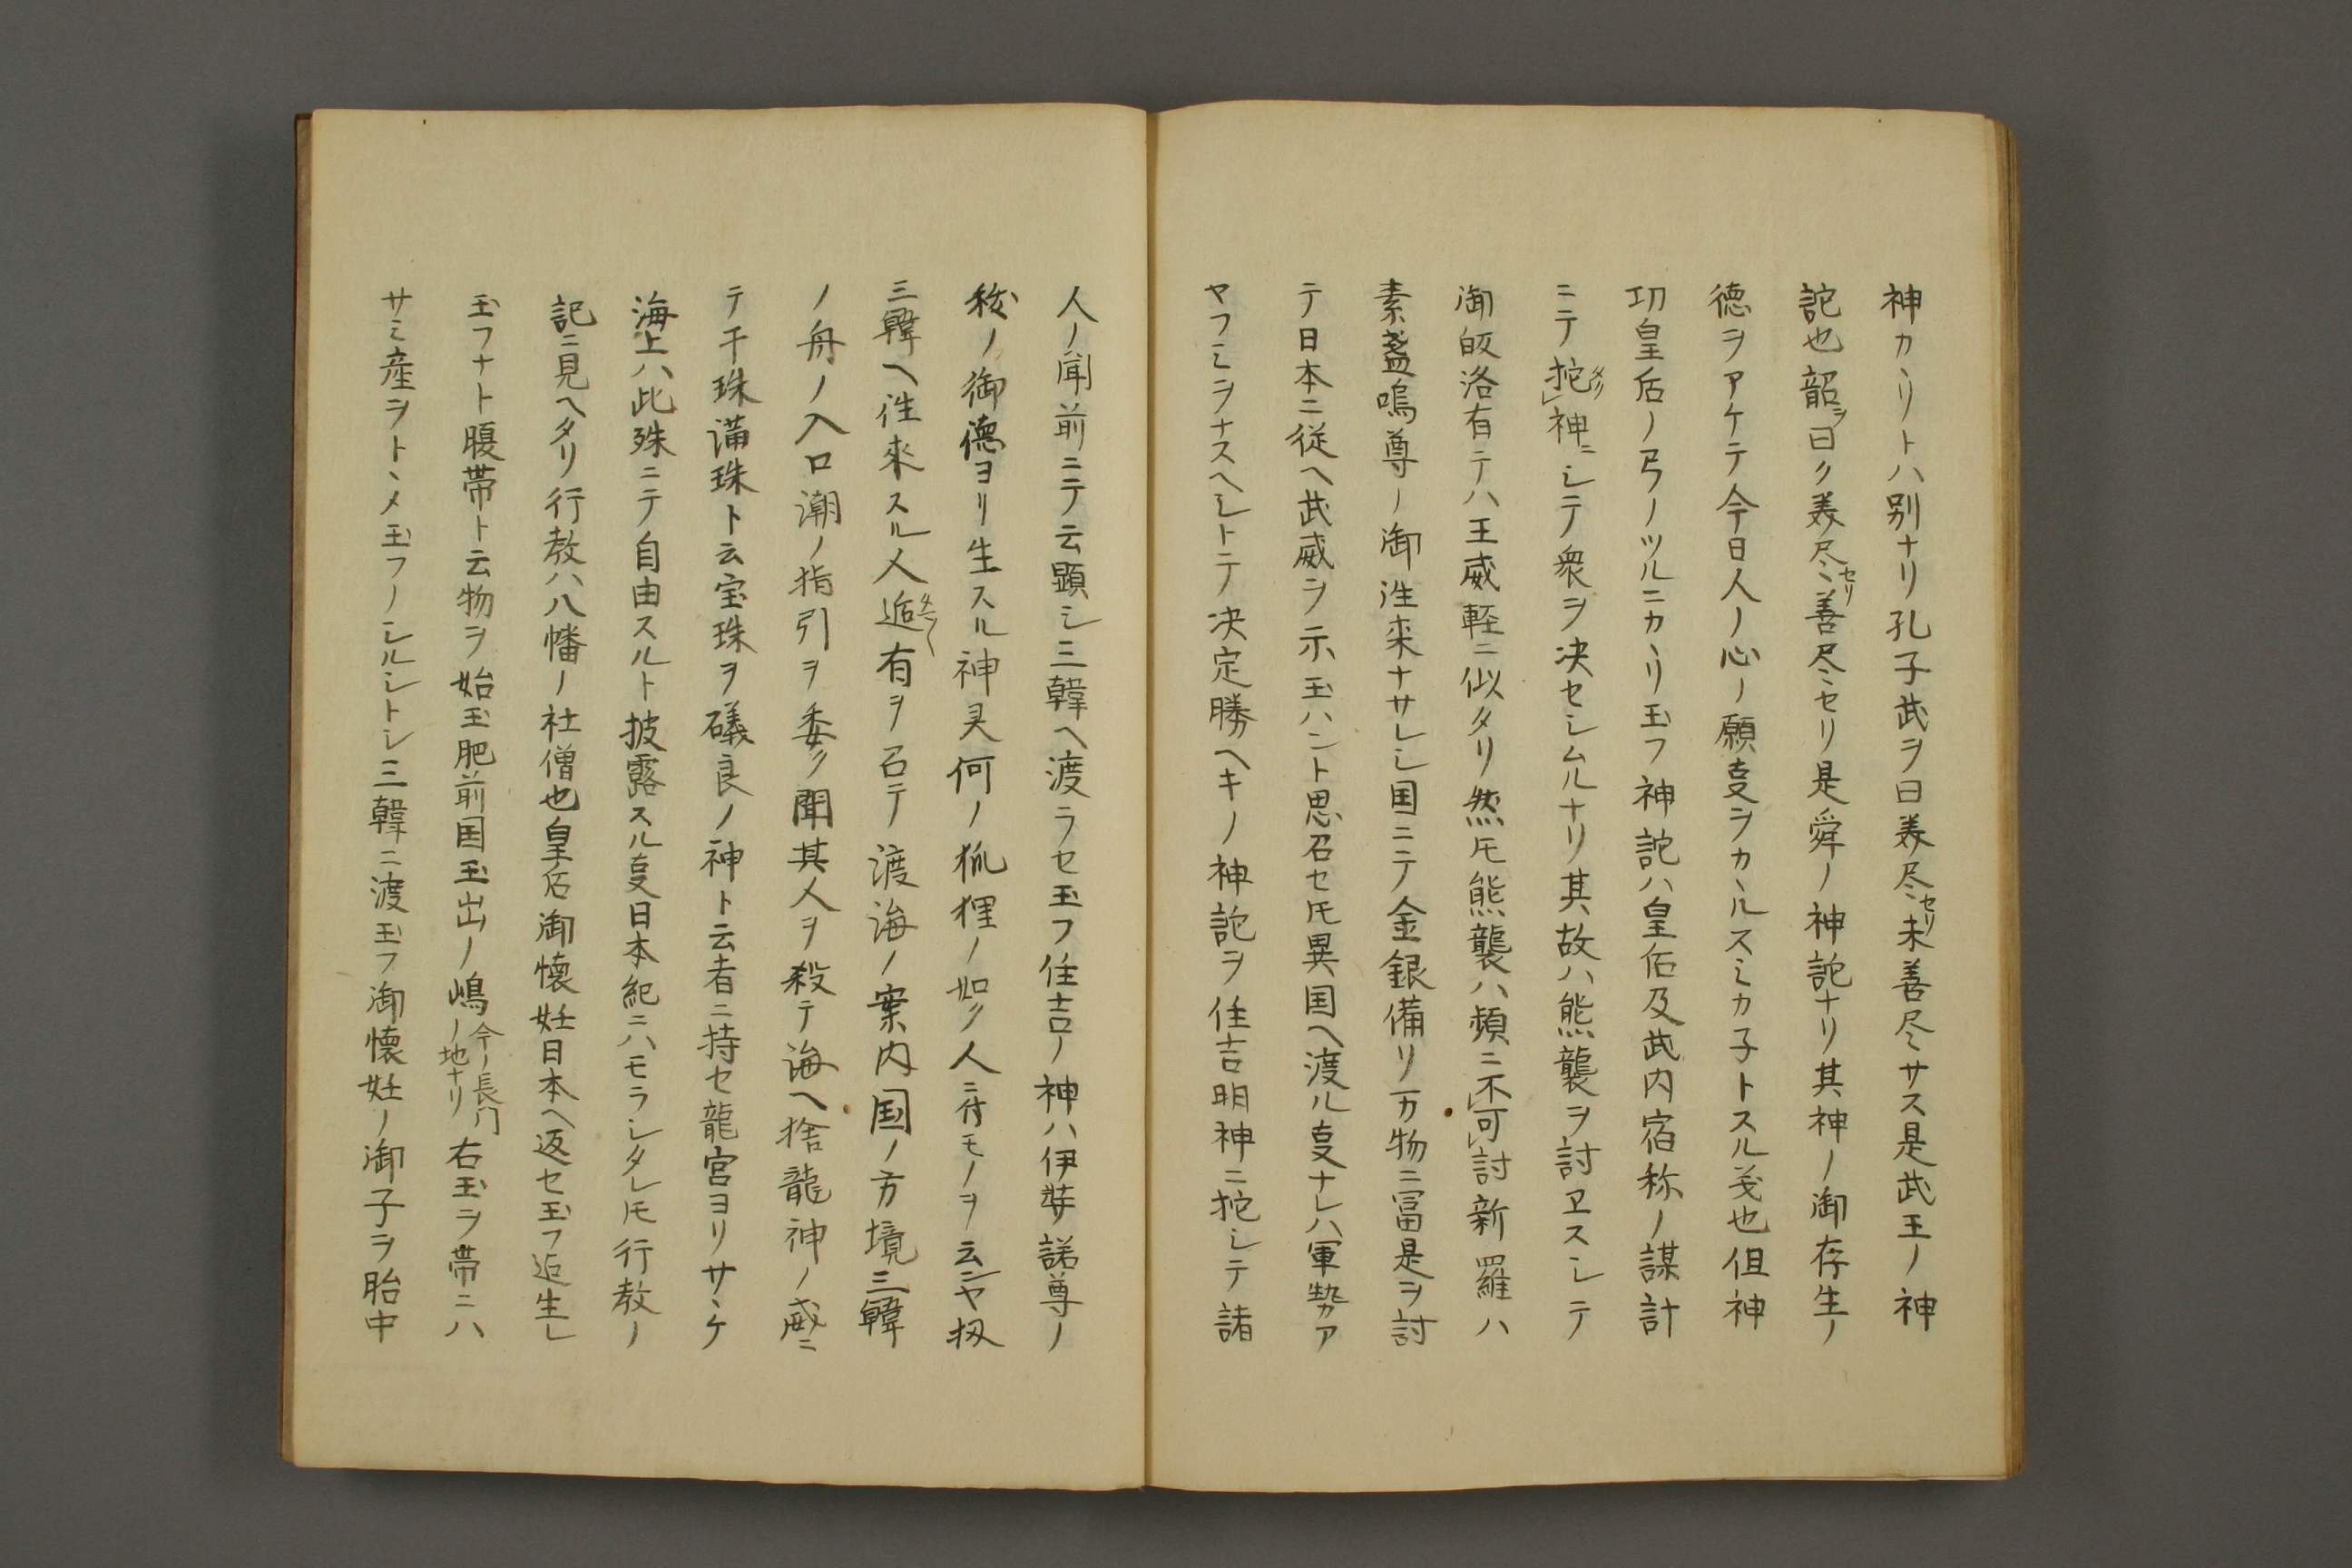 神カヽリトハ別ナリ孔子武ヲ曰美尽セリ未善尽サス是武王ノ神
詑也韶ヲ曰ク美尽セリ善尽セリ是舜ノ神詑ナリ其神ノ御存生ノ
徳ヲアケテ今日人ノ心ノ願叓ヲカヽルスミカ子トスル義也但神
功皇后ノ弓ノツルニカヽリ玉フ神詑ハ皇后及武内宿称ノ謀計
ニテ拕神ニシテ衆ヲ決セシムルナリ其故ハ熊襲ヲ討ヱスシテ
御皈洛有テハ王威軽ニ似タリ然𪜈熊襲ハ頻ニ不可討新羅ハ
素盞嗚尊ノ御徃来ナサレシ国ニテ金銀備リ万物ニ冨是ヲ討
テ日本ニ従ヘ武威ヲ示玉ハント思召セ𪜈異国ヘ渡ル叓ナレハ軍勢ア
ヤフミヲナスヘシトテ決定勝ヘキノ神詑ヲ住吉明神ニ拕シテ諸
人ノ聞前ニテ云顕シ三韓ヘ渡ラセ玉フ住吉ノ神ハ伊弉諾尊ノ
秡ノ御徳ヨリ生スル神灵何ノ狐狸ノ如ク人ニ付モノヲ云ンヤ扨
三韓ヘ徃來スル人逅有ヲ召テ渡海ノ案内国ノ方境三韓
ノ舟ノ入口潮ノ指引ヲ委ク聞其人ヲ殺テ海ヘ捨龍神ノ威ニ
テ干珠満珠ト云宝珠ヲ礒良ノ神ト云者ニ持セ龍宮ヨリサヽケ
海上ハ此珠ニテ自由スルト披露スル叓日本紀ニハモラシタレ𪜈行教ノ
記ニ見ヘタリ行教ハ八幡ノ社僧也皇后御懐妊日本ヘ返セ玉フ迠生レ
玉フナト腹帯ト云物ヲ始玉肥前国玉出ノ嶋今ノ長门ノ地ナリ右玉ヲ帯ニハ
サミ産ヲトヽメ玉フノシルシトシ三韓ニ渡玉フ御懐妊ノ御子ヲ胎中